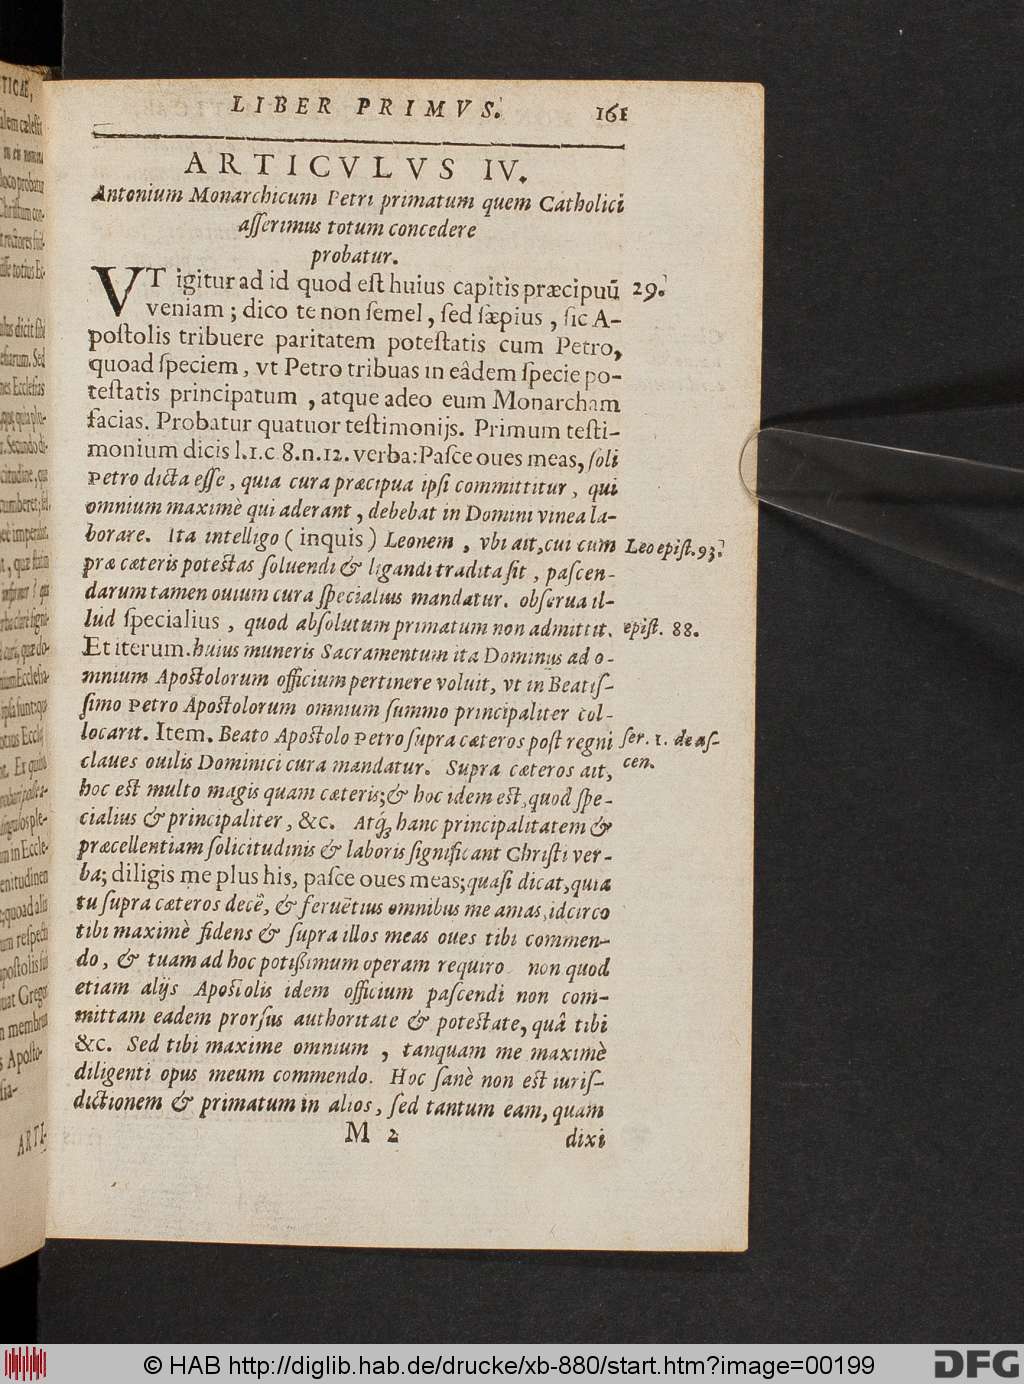 LIBER PRIMVS. 161
ARTICVLVS IV.
Antonium Monarchicum Petri primatum quem Catholici
asserimus totum concedere
probatur.
VT igitur ad id quod est huius capitis præcipuũ 29.
veniam ; dico te non semel, sed sæpius, sic A-
postolis tribuere paritatem potestatis cum Petro,
quoad speciem, vt Petro tribuas in eâdem specie po-
testatis principatum, atque adeo eum Monarcham
facias. Probatur quatuor testimonijs. Primum testi-
monium dicis l.1.c 8.n.12. verba: Pasce oues meas, soli
Petro dicta esse, quia cura præcipua ipsi committitur, qui
omnium maximè qui aderant, debebat in Domini vinea la-
borare. Ita intelligo (inquis) Leonem, vbi ait, cui cum Leo epist. 93.
præ cæteris potestas soluendi & ligandi tradita sit, pascen-
darum tamen ouium cura specialius mandatur. obserua il-
lud specialius, quod absolutum primatum non admittit. epist. 88.
Et iterum. huius muneris Sacramentum ita Dominus ad o-
mnium Apostolorum officium pertinere voluit, vt in Beatis-
simo Petro Apostolorum omnium summo principaliter col-
locarit. Item. Beato Apostolo Petro supra cæteros post regni ser. 1. de as-
claues ouilis Dominici cura mandatur. Supra cæteros ait, cen.
hoc est multo magis quam cæteris; & hoc idem est, quod spe-
cialius & principaliter, &c. Atq́; hanc principalitatem &
præcellentiam solicitudinis & laboris significant Christi ver-
ba; diligis me plus his, pasce oues meas; quasi dicat, quia
tu supra cæteros decẽ, & feruẽtius omnibus me amas, idcirco
tibi maximè fidens & supra illos meas oues tibi commen-
do, & tuam ad hoc potißimum operam requiro non quod
etiam alijs Apostolis idem officium pascendi non com-
mittam eadem prorsus authoritate & potestate, quâ tibi
&c. Sed tibi maxime omnium, tanquam me maximè
diligenti opus meum commendo. Hoc sanè non est iuris-
dictionem & primatum in alios, sed tantum eam, quam
M 2 dixi
ARTI-
© HAB http://diglib.hab.de/drucke/xb-880/start.htm?image=00199
DFG